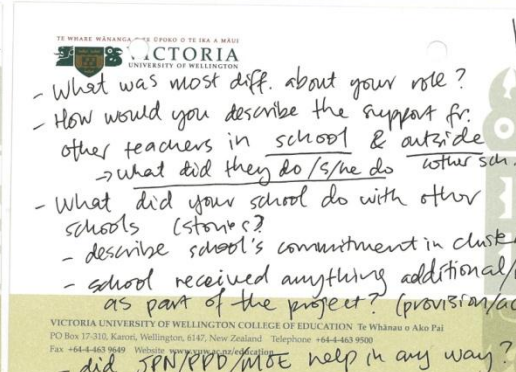 TE WHARE WĀNANGA O TE ŪPOKO O TE IKA A MĀUI
VICTORIA
UNIVERSITY OF WELLINGTON
- What was most diff. about your role?
- How would you describe the support fr.
other teachers in school & outside
→ what did they do /s/he do other sch.
- What did your school do with other
schools (stories?
- describe school's commitment in cluste
- school received anything additional/
as part of the project? (provision/ac
VICTORIA UNIVERSITY OF WELLINGTON COLLEGE OF EDUCATION Te Whānau o Ako Pai
PO Box 17-310, Karori, Wellington, 6147, New Zealand Telephone +64-4-463 9500
Fax +64-4-463 9649 Website www.vuw.ac.nz/education
- did JPN/PPD/MOE help in any way?